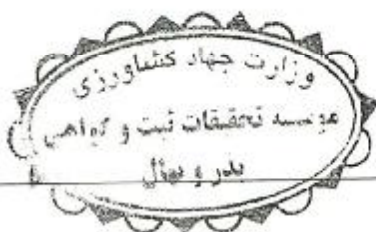 وزارت جهاد کشاورزی
موسسه تحقیقات ثبت و گواهی
بذر و نهال